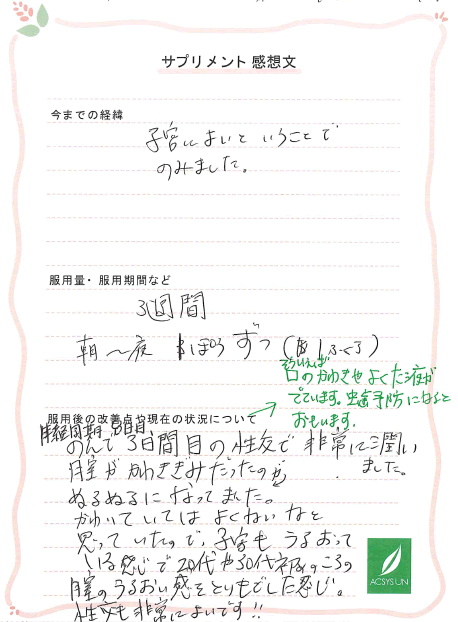 サプリメント 感想文
今までの経緯
子宮によいということで
のみました。
服用量・服用期間など
3週間
朝〜夜 1ぽうずつ (1ふくろ)
そういえば
口のかわきやよくだ液が
でています。虫歯予防になると
おもいます。
服用後の改善点や現在の状況について
月経周期 8日目
のんで3日間目の性交で非常に潤い
ました。
膣がかわきぎみだったのが
ぬるぬるになってました。
かわいていてはよくないなと
思っていたので、子宮もうるおって
いる感じで20代や30代初めのころの
膣のうるおい感をとりもどした感じ。
性交も非常によいです!!
ACSYS UN